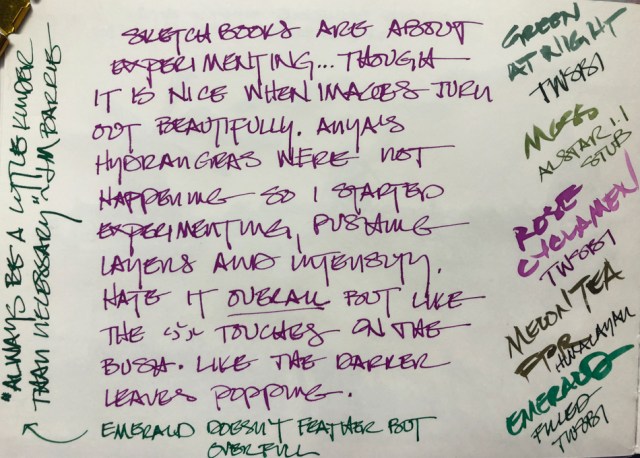 SKETCHBOOKS ARE ABOUT
EXPERIMENTING... THOUGH
IT IS NICE WHEN IMAGES TURN
OUT BEAUTIFULLY. ANYA'S
HYDRANGEAS WERE NOT
HAPPENING SO I STARTED
EXPERIMENTING, PUSHING
LAYERS AND INTENSITY.
HATE IT OVERALL BUT LIKE
THE TOUCHES ON THE
BUSH. LIKE THE DARKER
LEAVES POPPING.
EMERALD DOESN'T FEATHER BUT
OVERFULL
"ALWAYS BE A LITTLE KINDER
THAN NECESSARY" ~JM BARRIE
GREEN
AT NIGHT
TWSBI
ALSTAR 1.1
STUB
ROSE
CYCLAMEN
TWSBI
MELON TEA
HIMALAYAN
EMERALD
FILLED
TWSBI